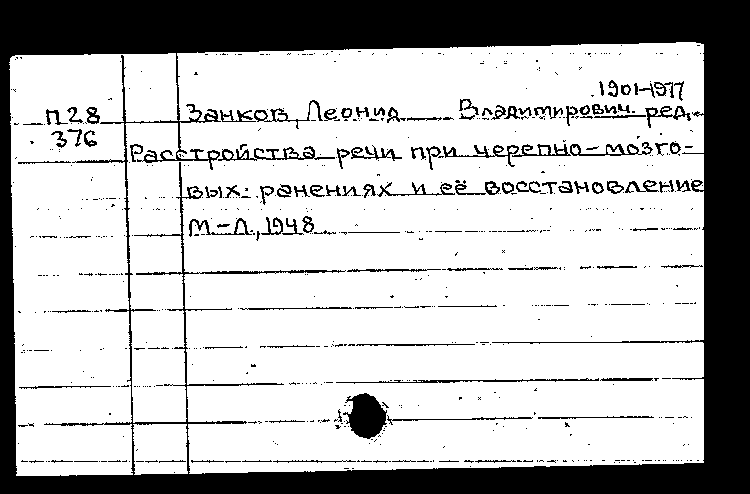 1901-1977
П28 Занков, Леонид Владимирович. ред.
376
Расстройства речи при черепно-мозго-
вых ранениях и её восстановление
М.-Л., 1948.